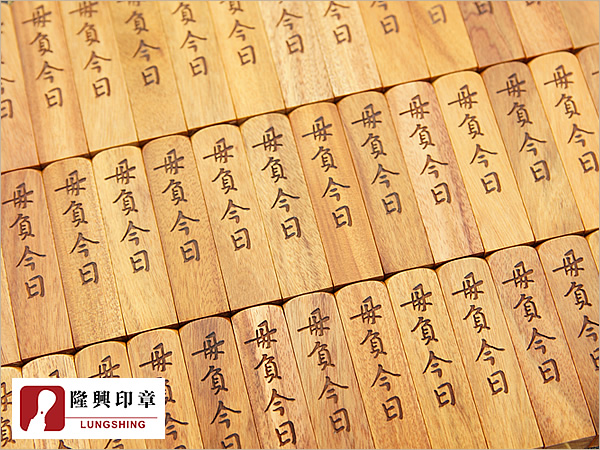 毋負今日
毋負今日
毋負今日
負今日
負今日
今日
今日
日
日
日
毋負今日
毋負今日
毋負今日
毋負今日
毋負今日
毋負今日
毋負今日
毋負今日
毋負今日
毋負今日
毋負今日
毋負今日
毋
毋
毋
毋負今日
毋負今日
毋負今日
毋負今日
毋負今日
毋負今日
毋負今日
毋負今日
隆興印章
LUNGSHING